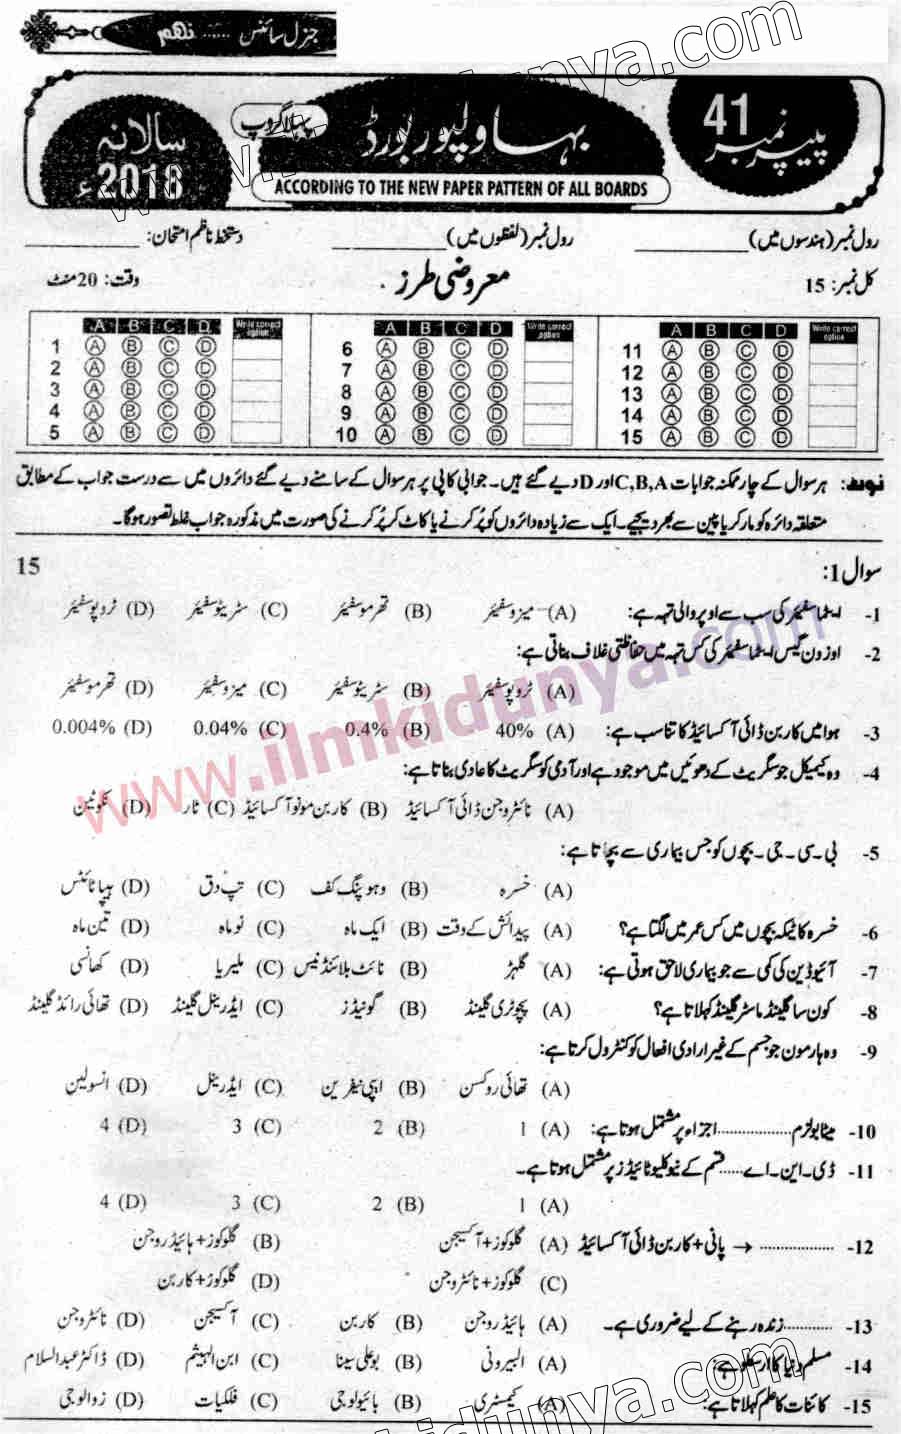 جنرل سائنس ...... نہم
پیپر نمبر 41
بہاولپور بورڈ
پہلا گروپ
سالانہ 2018ء
ACCORDING TO THE NEW PAPER PATTERN OF ALL BOARDS
رول نمبر (ہندسوں میں) ____________ رول نمبر (لفظوں میں) ____________ دستخط ناظم امتحان: ____________
کل نمبر: 15 معروضی طرز وقت: 20 منٹ
A B C D Write correct option A B C D Write correct option A B C D Write correct option
1 A B C D 6 A B C D 11 A B C D
2 A B C D 7 A B C D 12 A B C D
3 A B C D 8 A B C D 13 A B C D
4 A B C D 9 A B C D 14 A B C D
5 A B C D 10 A B C D 15 A B C D
نوٹ: ہر سوال کے چار ممکنہ جوابات C,B,A اور D دیے گئے ہیں۔ جوابی کاپی پر ہر سوال کے سامنے دیے گئے دائروں میں سے درست جواب کے مطابق
متعلقہ دائرہ کو مارکر یا پین سے بھر دیجیے۔ ایک سے زیادہ دائروں کو پُر کرنے یا کاٹ کر پُر کرنے کی صورت میں مذکورہ جواب غلط تصور ہوگا۔
سوال 1: 15
1- ایٹماسفیئر کی سب سے اوپر والی تہہ ہے: (A) میزوسفیئر (B) تھرموسفیئر (C) سٹریٹوسفیئر (D) ٹروپوسفیئر
2- اوزون گیس ایٹماسفیئر کی کس تہہ میں حفاظتی غلاف بناتی ہے:
(A) ٹروپوسفیئر (B) سٹریٹوسفیئر (C) میزوسفیئر (D) تھرموسفیئر
3- ہوا میں کاربن ڈائی آکسائیڈ کا تناسب ہے: (A) 40% (B) 0.4% (C) 0.04% (D) 0.004%
4- وہ کیمیکل جو سگریٹ کے دھوئیں میں موجود ہے اور آدمی کو سگریٹ کا عادی بناتا ہے:
(A) نائٹروجن ڈائی آکسائیڈ (B) کاربن مونو آکسائیڈ (C) ٹار (D) نکوٹین
5- بی-سی-جی- بچوں کو جس بیماری سے بچاتا ہے:
(A) خسرہ (B) وہوپنگ کف (C) تپ دق (D) ہیپاٹائٹس
6- خسرہ کا ٹیکہ بچوں میں کس عمر میں لگتا ہے؟ (A) پیدائش کے وقت (B) ایک ماہ (C) نو ماہ (D) تین ماہ
7- آئیوڈین کی کمی سے جو بیماری لاحق ہوتی ہے: (A) گلہڑ (B) نائٹ بلائنڈنیس (C) ملیریا (D) کھانسی
8- کون سا گلینڈ ماسٹر گلینڈ کہلاتا ہے؟ (A) پچوٹری گلینڈ (B) گونیڈز (C) ایڈرینل گلینڈ (D) تھائی رائڈ گلینڈ
9- وہ ہارمون جو جسم کے غیر ارادی افعال کو کنٹرول کرتا ہے:
(A) تھائی روکسن (B) ایپی نیفرین (C) ایڈرینل (D) انسولین
10- میٹابولزم .................. اجزاء پر مشتمل ہوتا ہے: (A) 1 (B) 2 (C) 3 (D) 4
11- ڈی-این-اے ...... قسم کے نیوکلیوٹائیڈز پر مشتمل ہوتا ہے۔
(A) 1 (B) 2 (C) 3 (D) 4
12- .................. → پانی + کاربن ڈائی آکسائیڈ (A) گلوکوز + آکسیجن (B) گلوکوز + ہائیڈروجن
(C) گلوکوز + نائٹروجن (D) گلوکوز + کاربن
13- ............ زندہ رہنے کے لیے ضروری ہے۔ (A) ہائیڈروجن (B) کاربن (C) آکسیجن (D) نائٹروجن
14- مسلم دنیا کا ارسطو ہے: (A) البیرونی (B) بوعلی سینا (C) ابن الہیثم (D) ڈاکٹر عبدالسلام
15- کائنات کا علم کہلاتا ہے: (A) کیمسٹری (B) بائیولوجی (C) فلکیات (D) زوالوجی
www.ilmkidunya.com